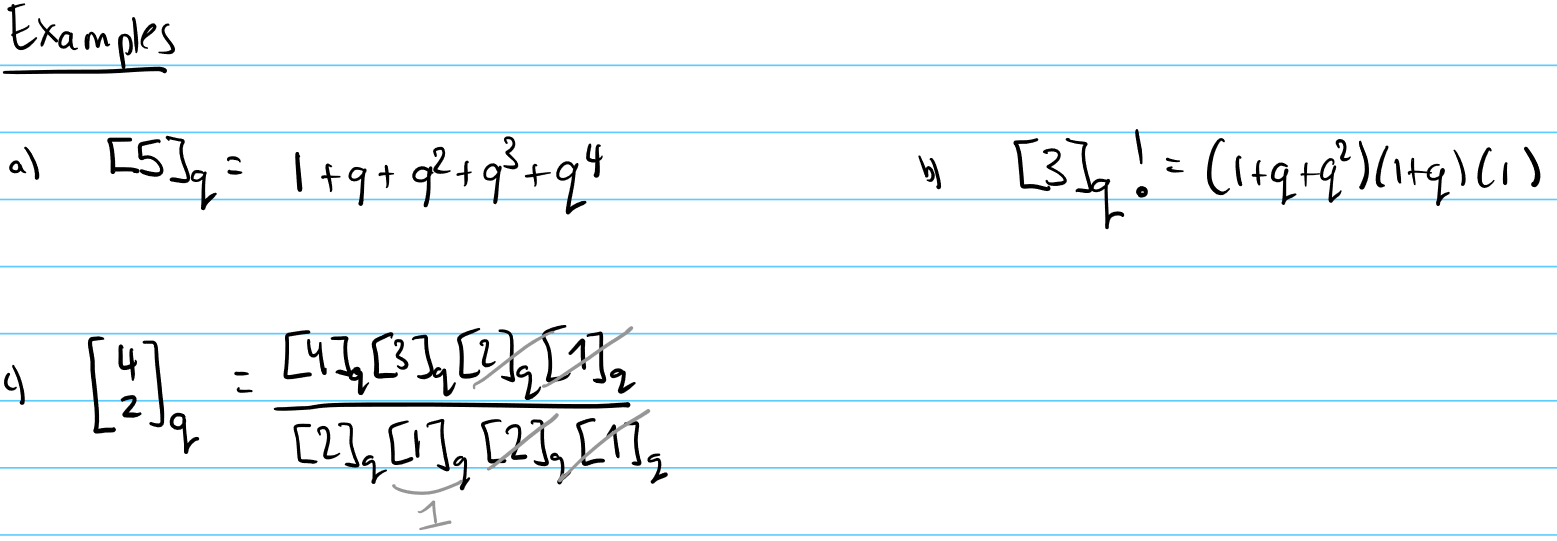 Examples
a) [5]_q = 1+q+q^2+q^3+q^4 b) [3]_q! = (1+q+q^2)(1+q)(1)
c) [4 2]_q = [4]_q[3]_q[2]_q[1]_q / [2]_q[1]_q[2]_q[1]_q
1